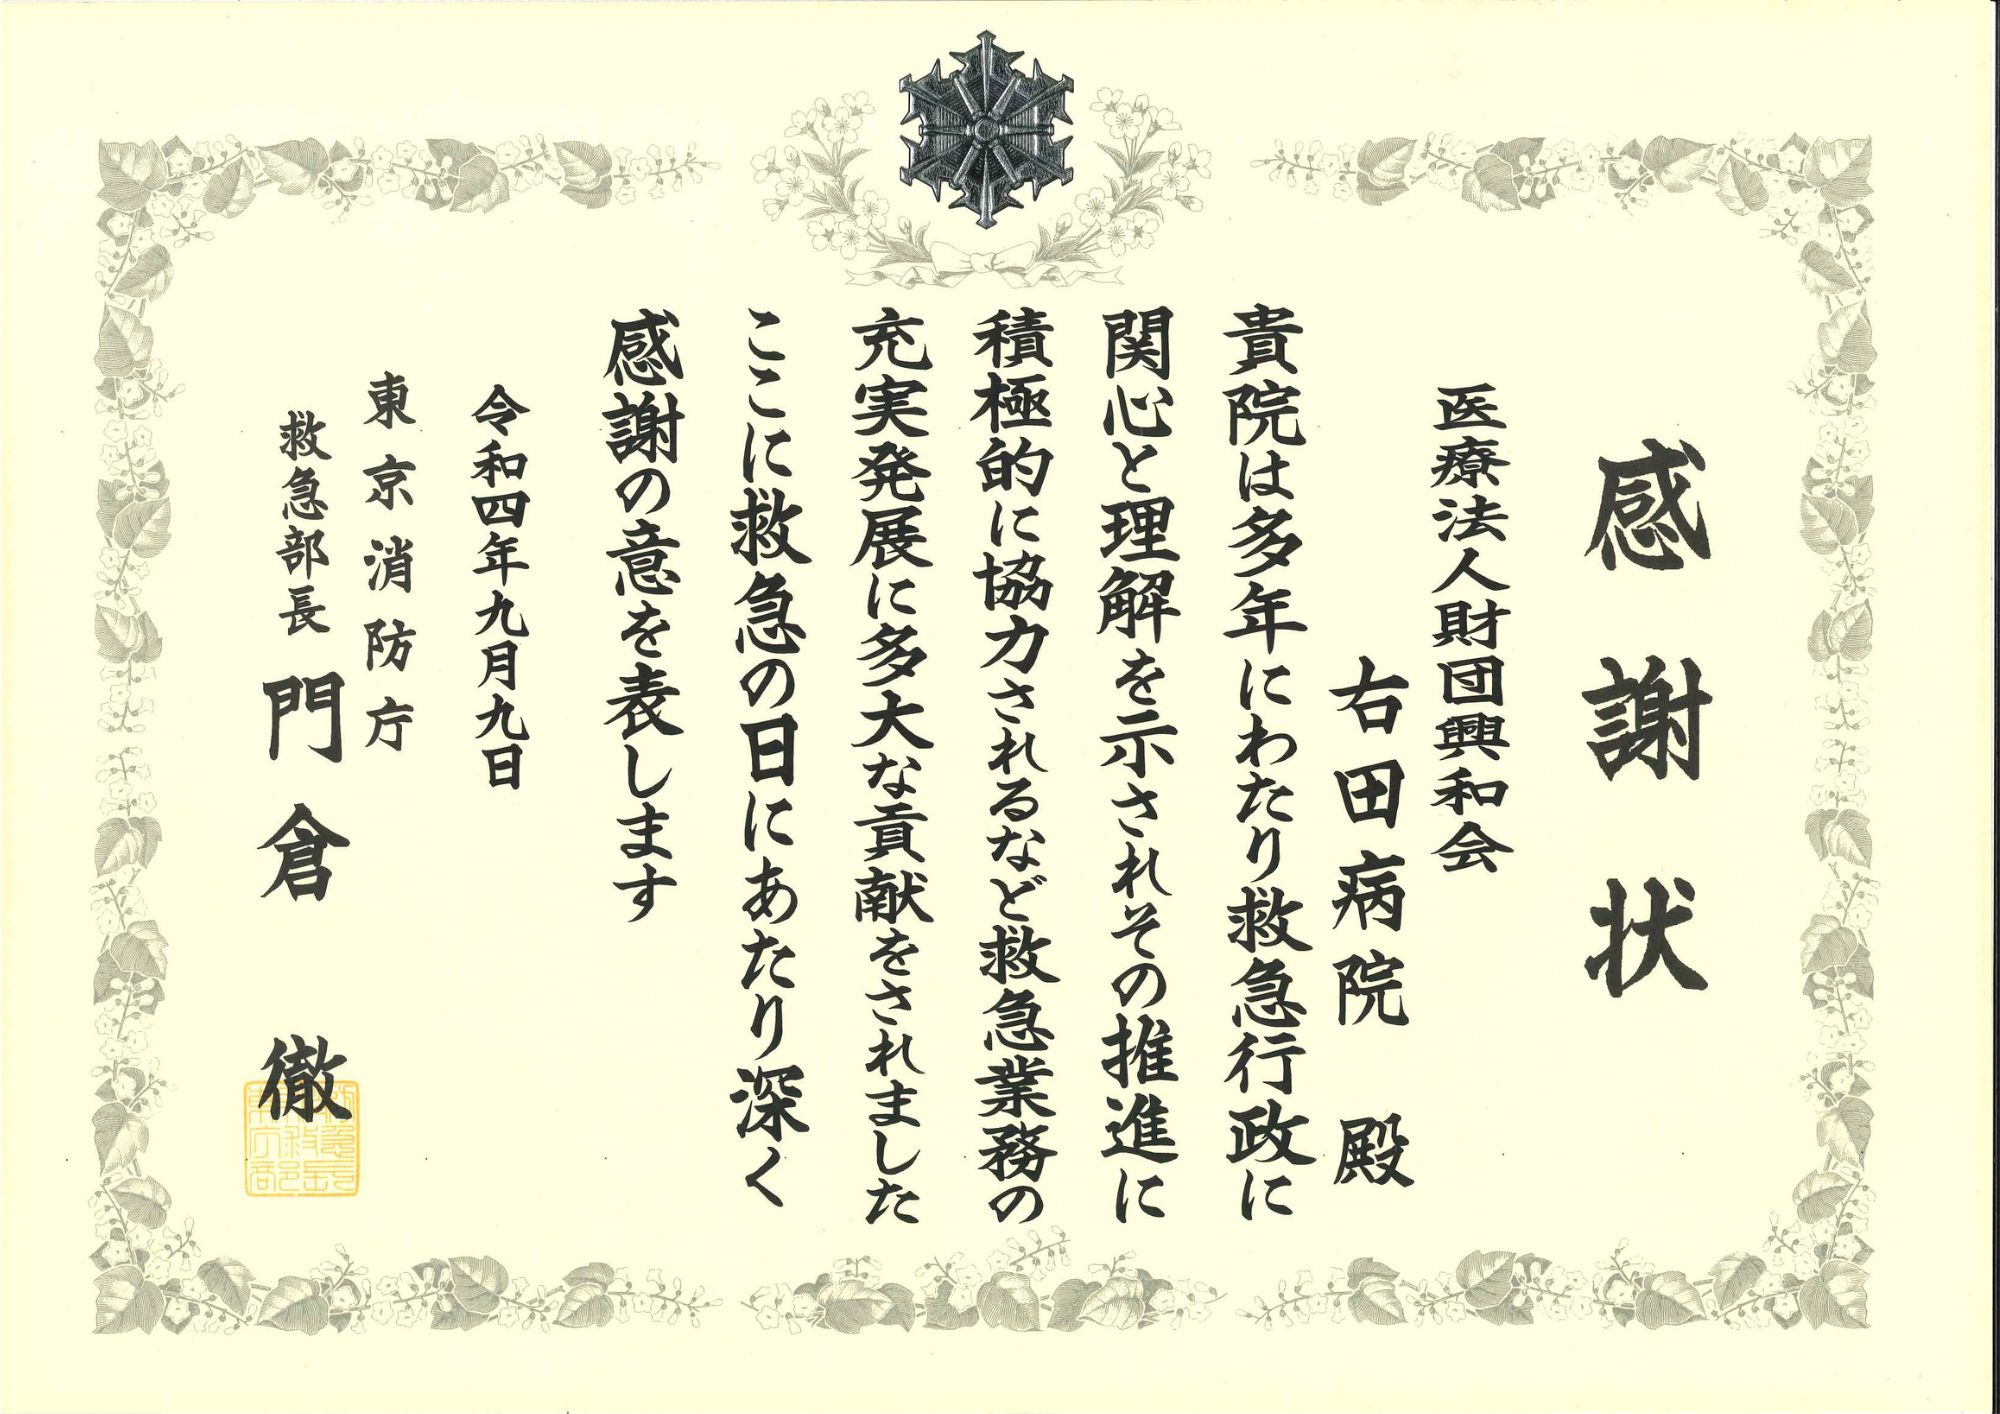 感謝状
医療法人財団興和会
右田病院 殿
貴院は多年にわたり救急行政に
関心と理解を示されその推進に
積極的に協力されるなど救急業務の
充実発展に多大な貢献をされました
ここに救急の日にあたり深く
感謝の意を表します
令和四年九月九日
東京消防庁
救急部長 門倉 徹